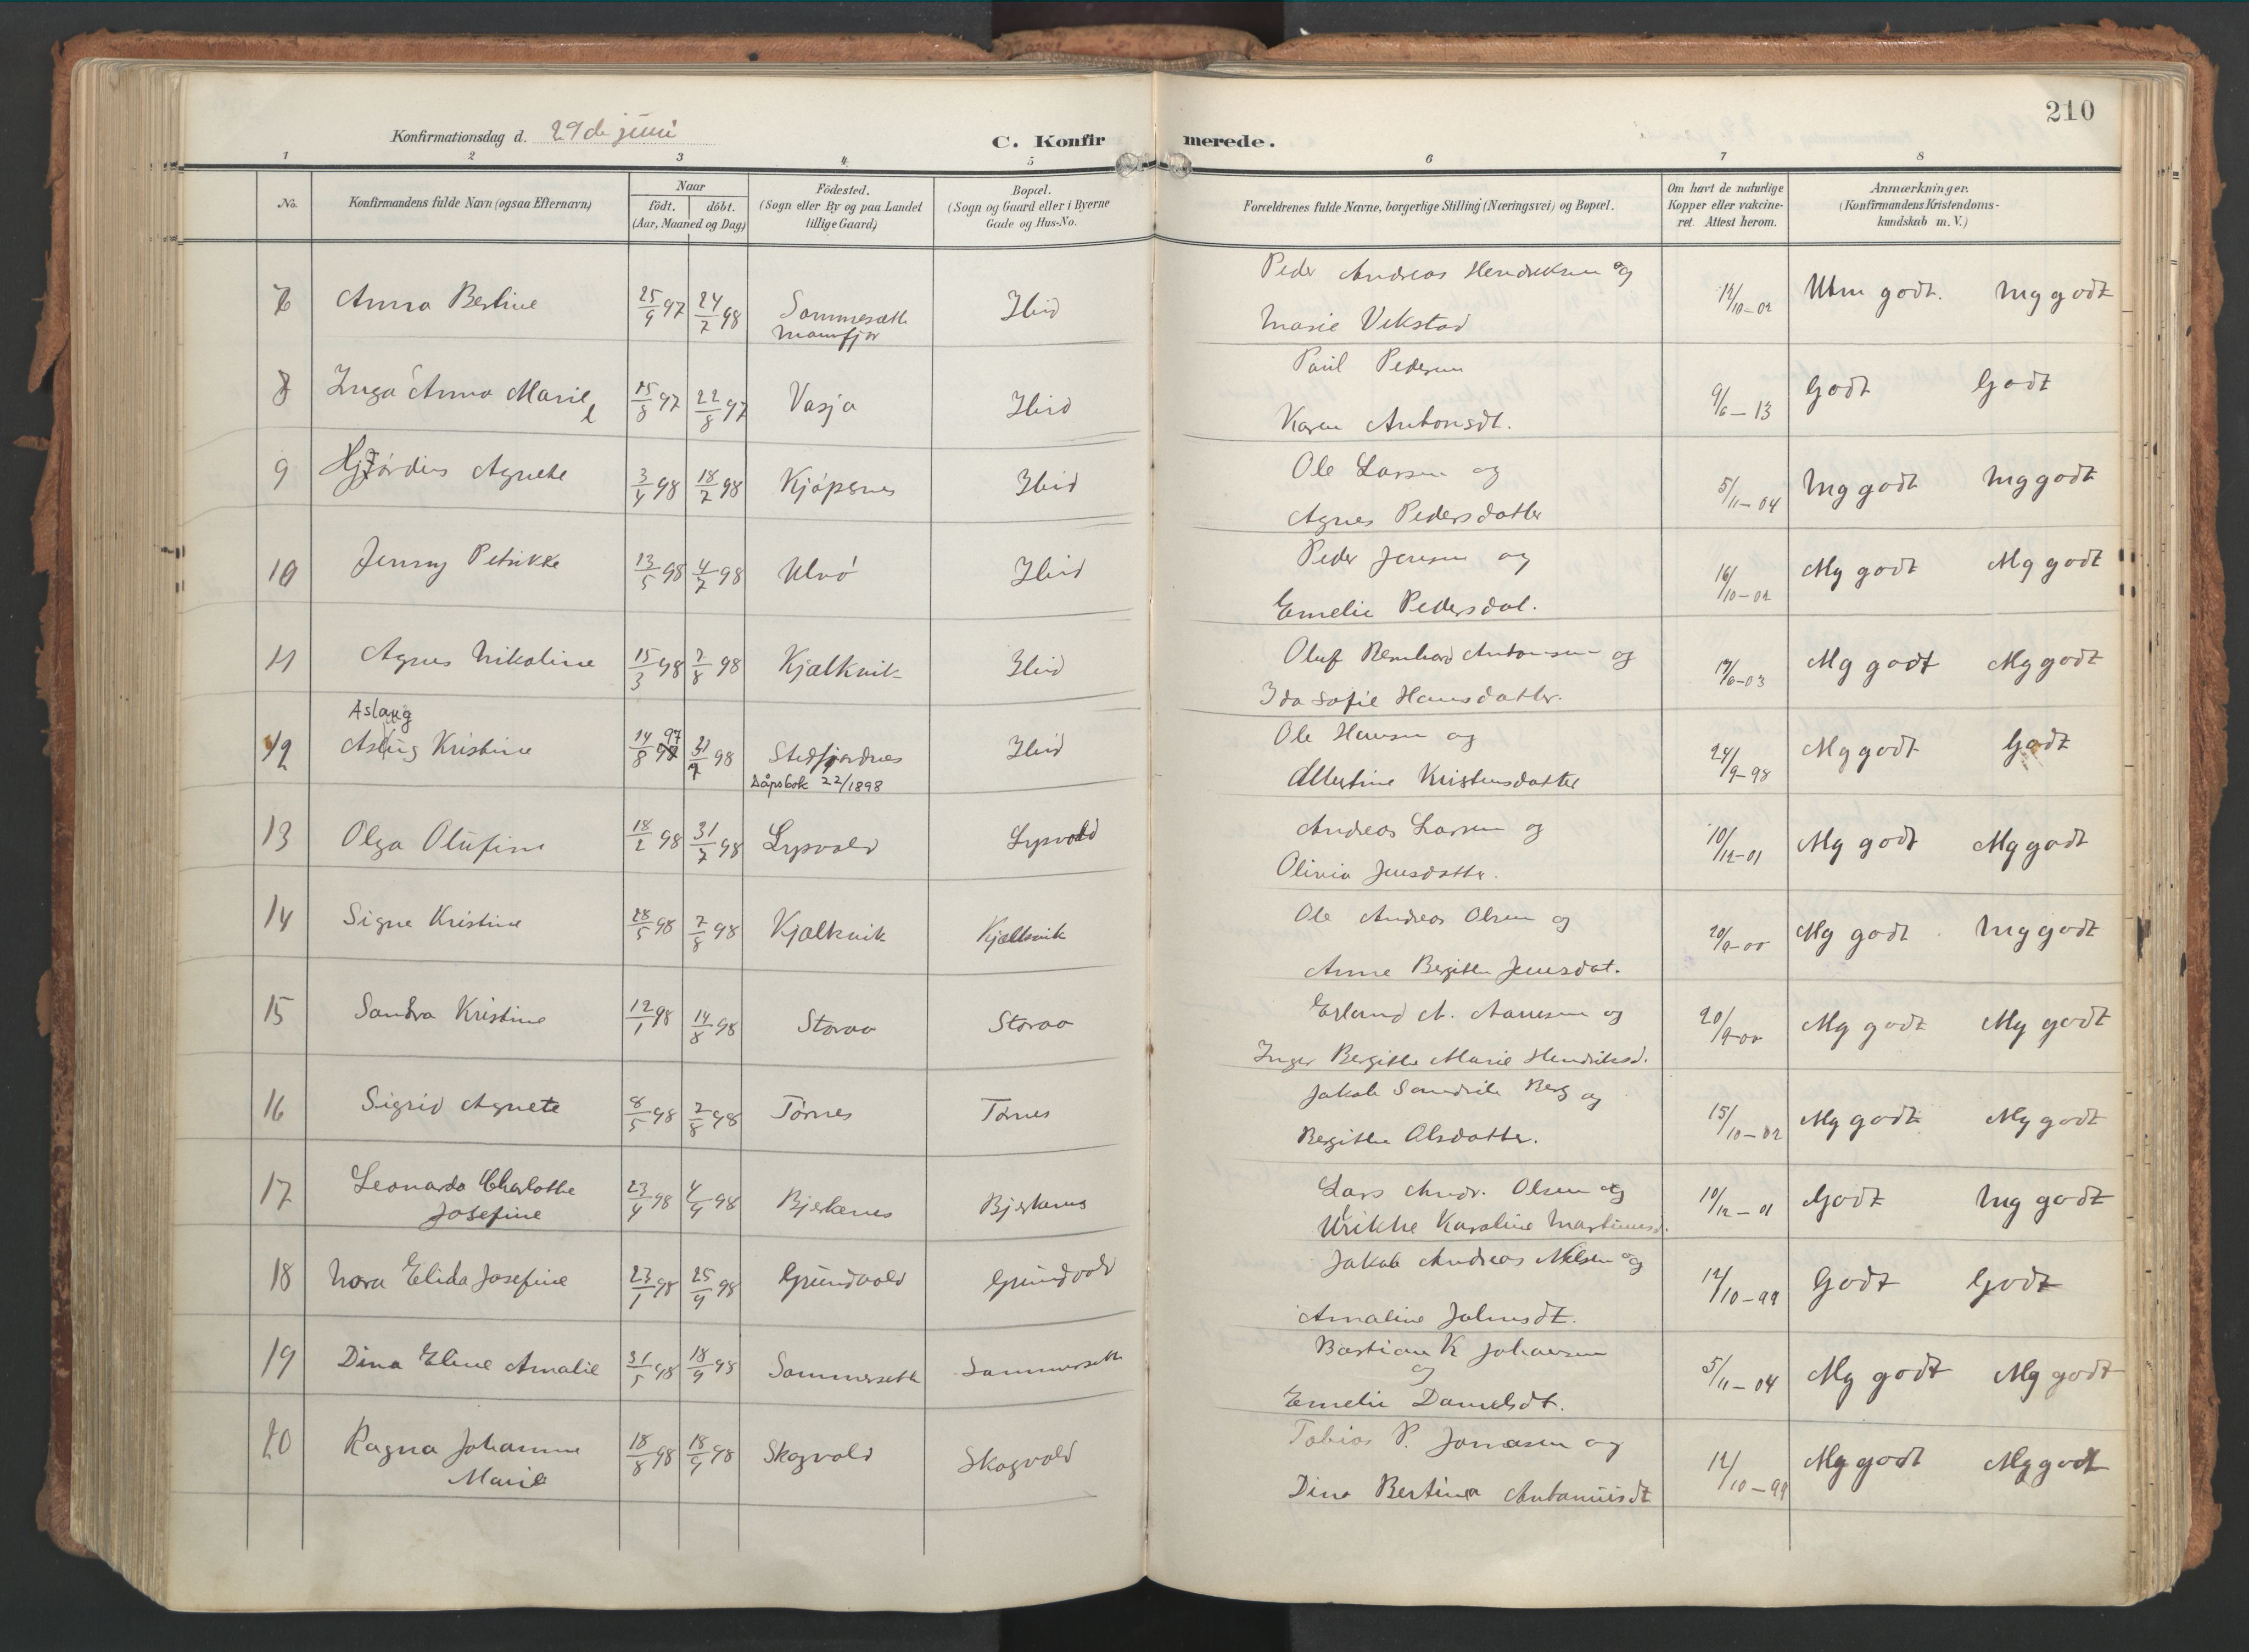 210
Konfirmationsdag d. 29de juni
C. Konfirmerede.
1 2 3 4 5 6 7 8
No.
Konfirmandens fulde Navn (ogsaa Efternavn)
Naar
födt. döbt.
(Aar, Maaned og Dag)
Födested.
(Sogn eller By og paa Landet
tillige Gaard)
Bopæl.
(Sogn og Gaard eller i Byerne
Gade og Hus-No.
Forældrenes fulde Navne, borgerlige Stilling (Næringsvei) og Bopæl.
Om havt de naturlige
Kopper eller vakcine-
ret. Attest herom.
Anmærkninger.
(Konfirmandens Kristendoms-
kundskab m. V.)
Anna Bertine 25/9 97 24/7 98 Sommersæth Ibid Peder Andreas Hendriksen og
Marie Vikstad 12/10-02 godt. Mg godt
8 Inga Anna Marie 15/8 97 22/8 97 Vasja Ibid Paul Pedersen
Karen Antonsdt. 9/6-13 Godt Godt
9 Hjördis Agnete 3/4 98 18/7 98 Kjöpsnes Ibid Ole Larsen og
Agnes Pedersdatter 5/11-04 Mg godt Mg godt
10 Jenny Petrikke 13/5 98 4/7 98 Ulvö Ibid Peder Jensen og
Emelie Pedersdat. 16/10-02 Mg godt Mg godt
11 Agnes Nikoline 15/3 98 7/8 98 Kjælkvik Ibid Oluf Bernhard Antonsen og
Ida Sofie Hansdatter. 17/6-03 Mg godt Mg godt
Aslaug
12 Aslug Kristine 14/8 97 31/7 98 Stedfjordnes Ibid Ole Hansen og
Dåpsbok 22/1898
Albertine Kristensdatter 24/9-98 Mg godt Godt
13 Olga Olufine 18/2 98 31/7 98 Lysvold Lysvold Andreas Larsen og
Olivia Jensdatter. 10/12-01 Mg godt Mg godt
14 Signe Kristine 28/5 98 7/8 98 Kjælkvik Kjælkvik Ole Andreas Olsen og
Anne Bergitte Jensdat. 20/9-00 Mg godt Mg godt
15 Sandra Kristine 12/1 98 14/8 98 Storaa Storaa Erland A. Aanesen og
Inger Bergitte Marie Hendriksd. 20/9-00 Mg godt Mg godt
16 Sigrid Agnete 8/5 98 7/8 98 Törnes Tornes Jakob Berg og
Bergitte Olsdatter. 15/10-02 Mg godt Mg godt
17 Leonarda Charlotte
Josefine 23/4 98 4/9 98 Bjerkenes Bjerkenes Lars Andr. Olsen og
Ulrikke Karoline Martinusd. 10/12-01 Godt Mg godt
18 Nora Elida Josefine 23/1 98 25/9 98 Grundvold Grundvold Jakob Andreas Nilsen og
Amaline Johnsdt. 12/10-99 Godt Godt
19 Dina Eline Amalie 31/5 98 18/9 98 Sommersæth Sommerseth Bastian K Johansen
og
Emelie Danielsdt. 5/11-04 Mg godt Mg godt
20 Ragna Johanne
Marie 18/8 98 18/9 98 Skogvold Skogvold Tobias P. Jonasen og
Dina Bertina Antoniusdt 12/10-99 Mg godt Mg godt